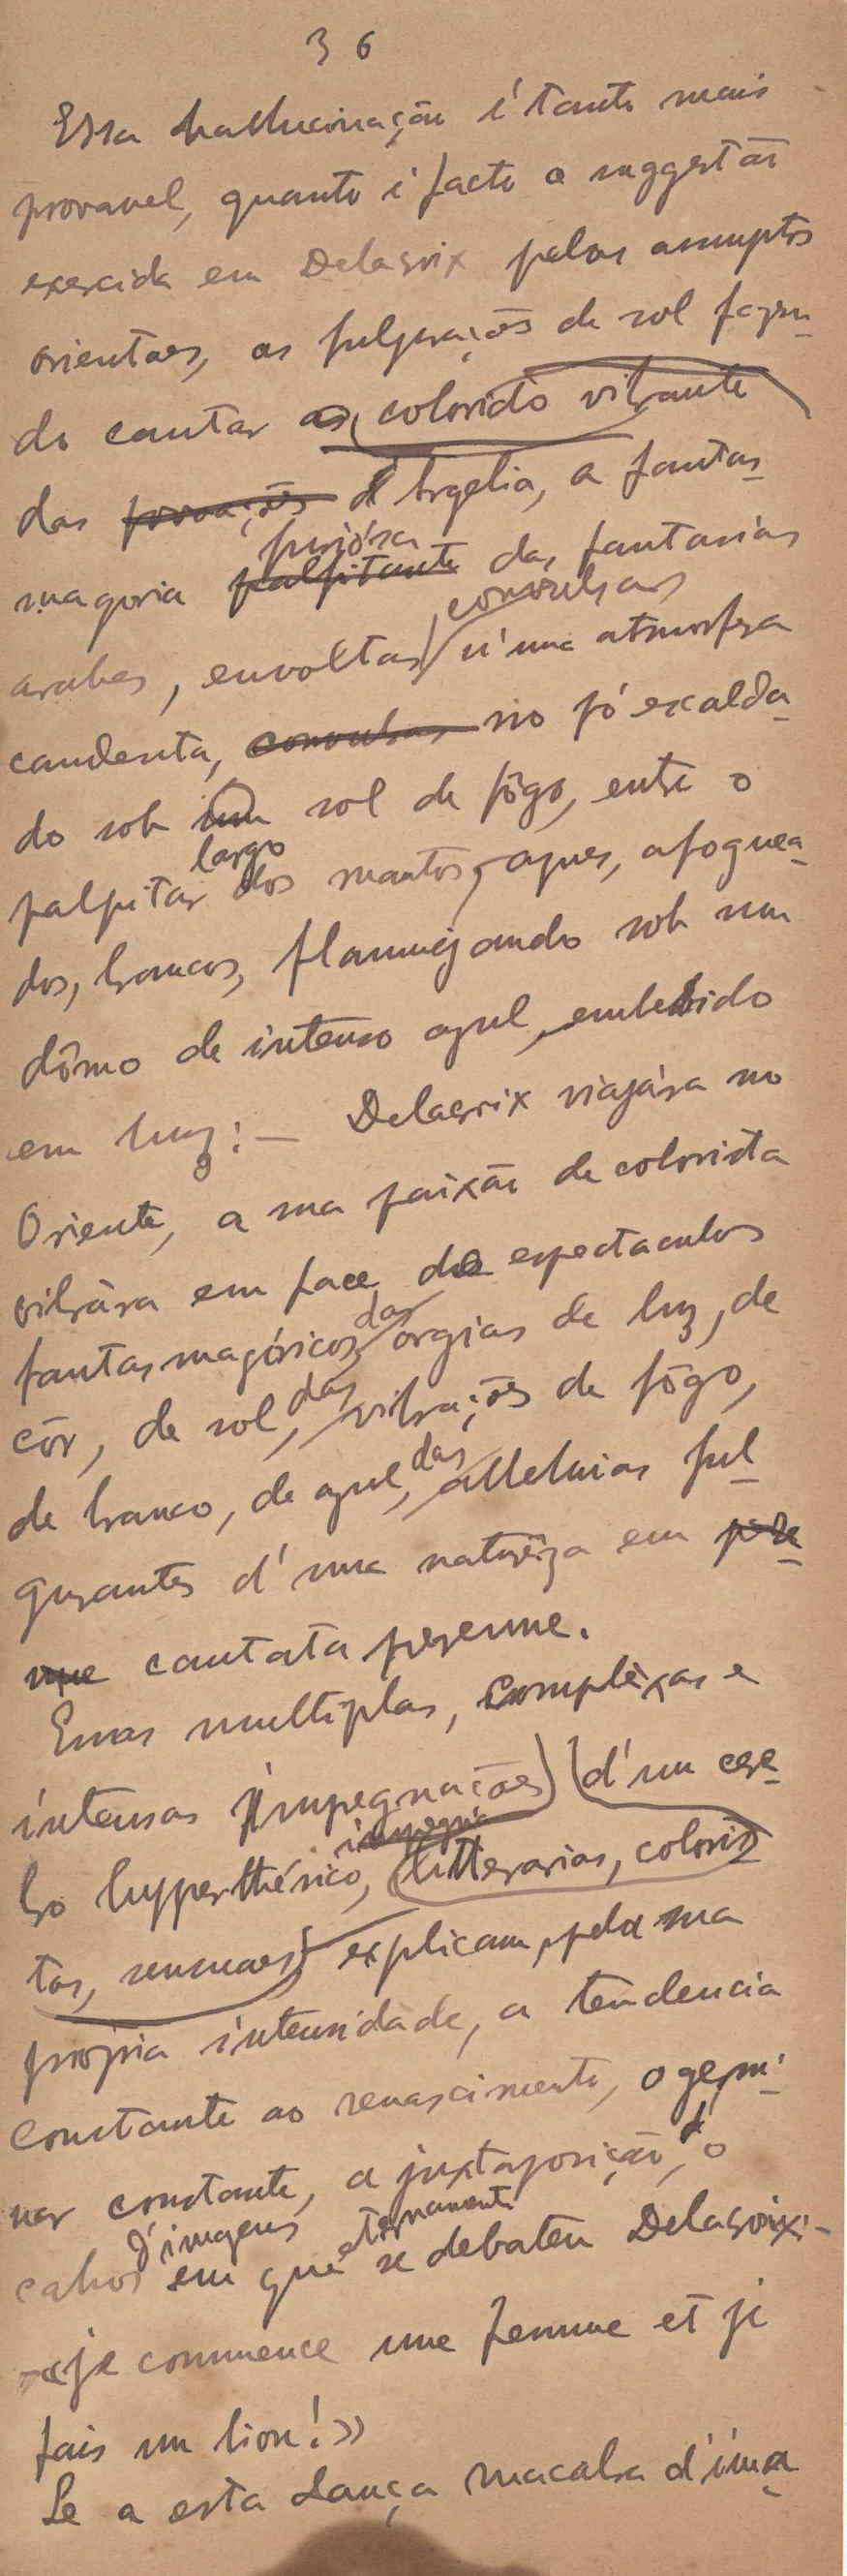 36
Essa hallucinação é tanto mais
provavel, quanto é facto a suggestão
exercida em Delacroix pelos assumptos
orientaes, as fulgurações de sol fazen-
do cantar as colorido vibrante
das provações d'Argelia, a fantas-
furiósa
magoria palpitante das fantasias
convulsas
arabes, envoltas n'uma atmosfera
candente, convulsas no pó escalda-
do sob um sol de fôgo, entre o
largo
palpitar dos mantos, azues, afoguea-
dos, brancos, flammejando sob um
dômo de intenso azul, embebido
em luz: — Delacroix viajára no
Oriente, a sua paixão de colorista
vibrára em face de espectaculos
das
fantasmagóricos, orgias de luz, de
das
côr, de sol, vibrações de fôgo,
das
de branco, de azul, alleluias ful-
gurantes d'uma naturêza em
cantata perenne.
Essas multiplas, complexas e
intensas impregnações d'um cere-
bro hypperthésico, litterarias, coloris-
tas, sensuaes explicam, pela sua
propria intensidade, a tendencia
constante ao renascimento, o germi-
nar constante, a juxtaposição, o
d'imagens eternamente
cahos em que se debateu Delacroix: -
«je commence une femme et je
fais un lion!»
Se a esta dança macabra d'ima-